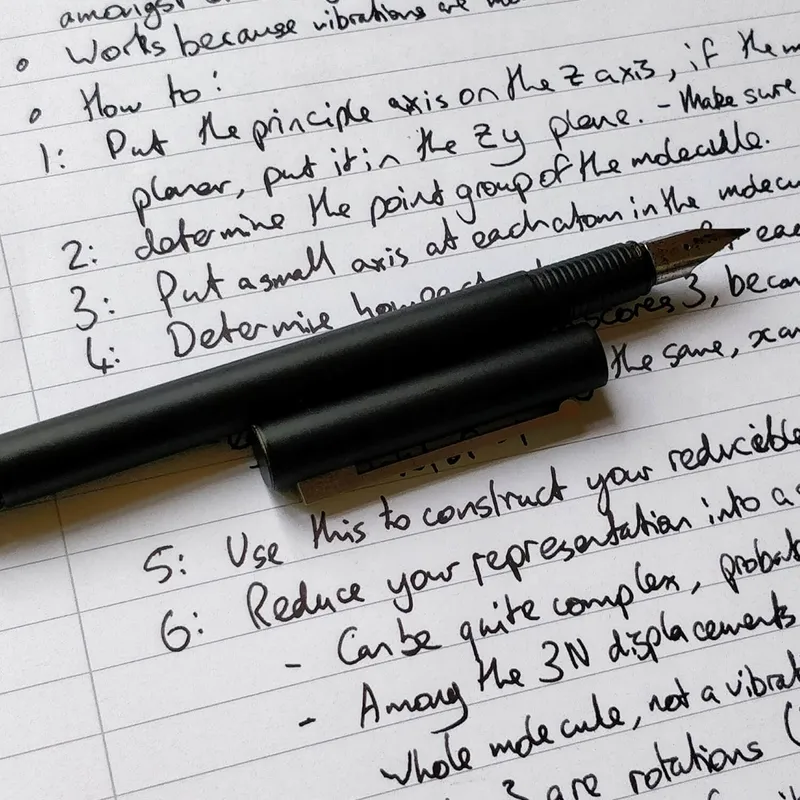 amongst
• Works because vibrations are
• How to:
1: Put the principle axis on the z axis, if the m
planer, put it in the zy plane. - Make sure
2: determine the point group of the molecule.
3: Put a small axis at each atom in the molecu
4: Determine how each eac
scores 3, becau
the same, x an
5: Use this to construct your reducible
6: Reduce your representation into a s
- Can be quite complex, probab
- Among the 3N displacements
whole molecule, not a vibrat
3 are rotations (